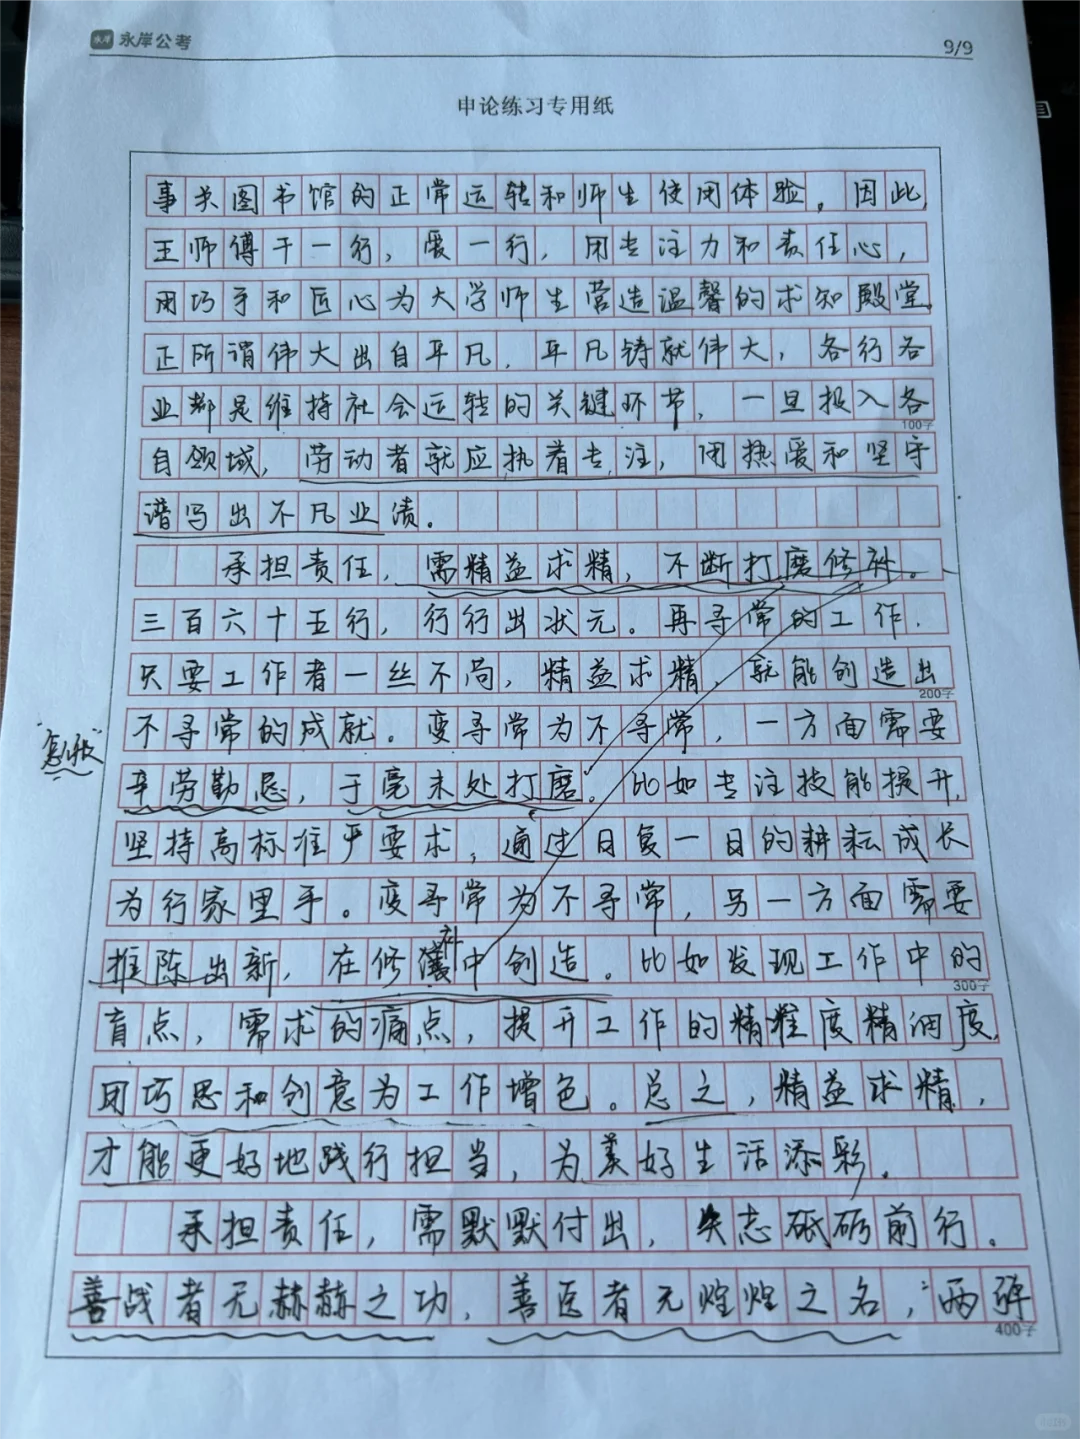 永岸公考
9/9
申论练习专用纸
事关图书馆的正常运转和师生使用体验。因此,
王师傅干一行,爱一行,用专注力和责任心,
用巧手和匠心为大学师生营造温馨的求知殿堂
正所谓伟大出自平凡,平凡铸就伟大,各行各
业都是维持社会运转的关键环节,一旦投入各
100字
自领域,劳动者就应执着专注,用热爱和坚守
谱写出不凡业绩。
承担责任,需精益求精,不断打磨修补。
三百六十五行,行行出状元。再寻常的工作,
只要工作者一丝不苟,精益求精,就能创造出
200字
不寻常的成就。变寻常为不寻常,一方面需要
辛劳勤恳,于毫末处打磨。比如专注技能提升,
坚持高标准严要求,通过日复一日的耕耘成长
为行家里手。变寻常为不寻常,另一方面需要
推陈出新,在修补中创造。比如发现工作中的
300字
盲点,需求的痛点,提升工作的精程度精细度,
用巧思和创意为工作增色。总之,精益求精,
才能更好地践行担当,为美好生活添彩。
承担责任,需默默付出,矢志砥砺前行。
善战者无赫赫之功,善医者无煌煌之名,"两弹
400字
小红书